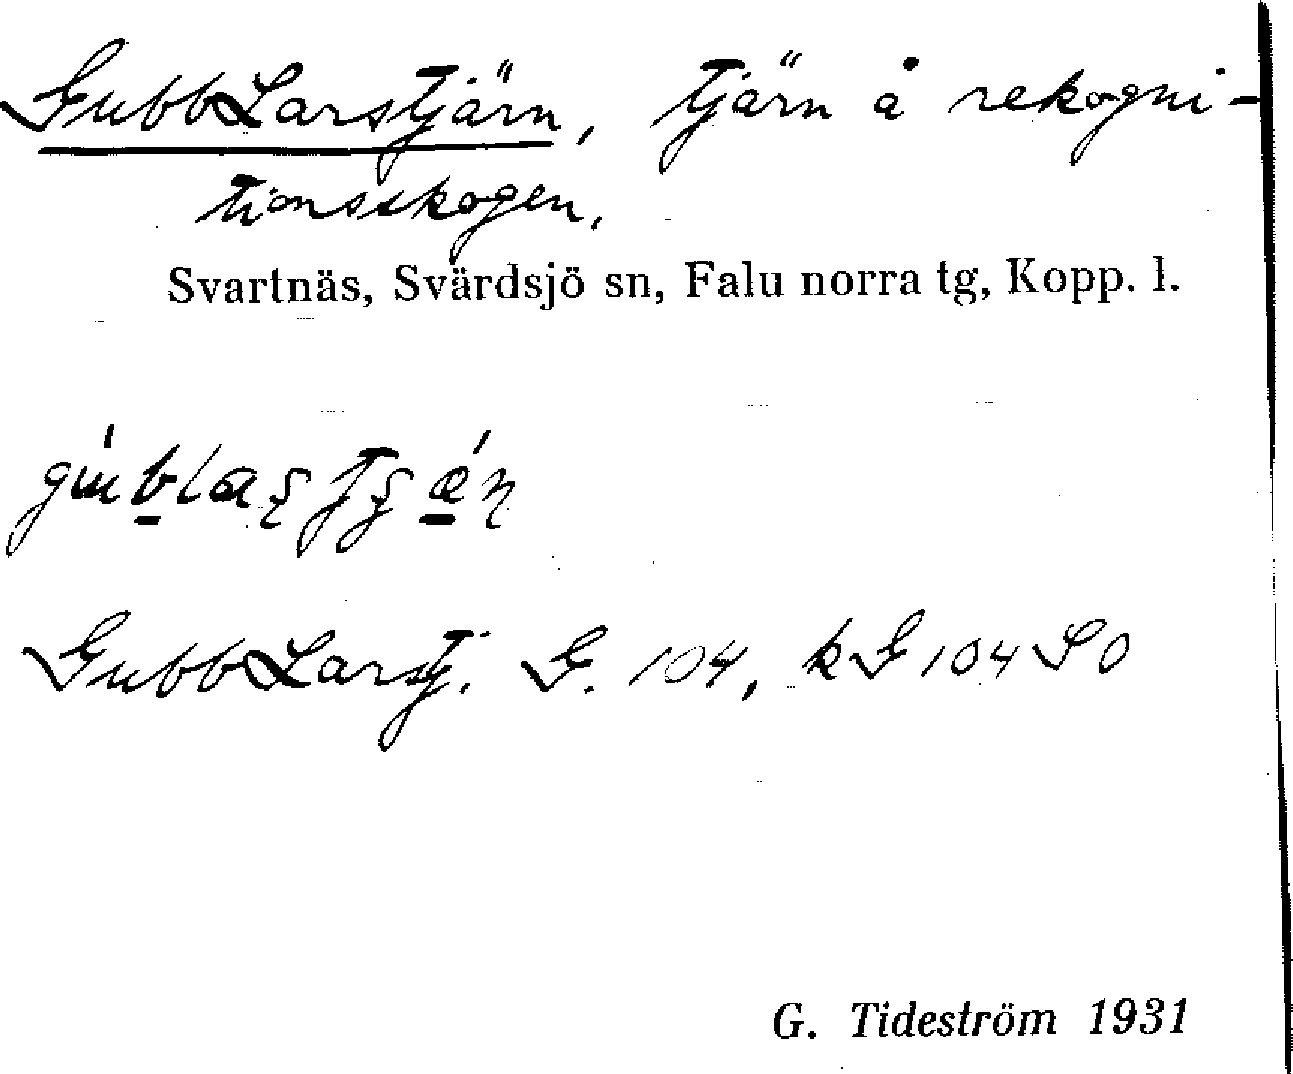 GubbLarstjärn, tjärn å rekogni-
tionsskogen,
Svartnäs, Svärdsjö sn, Falu norra tg, Kopp. l.
GubbLarstj. G. 104, kG 104 SO
G. Tideström 1931